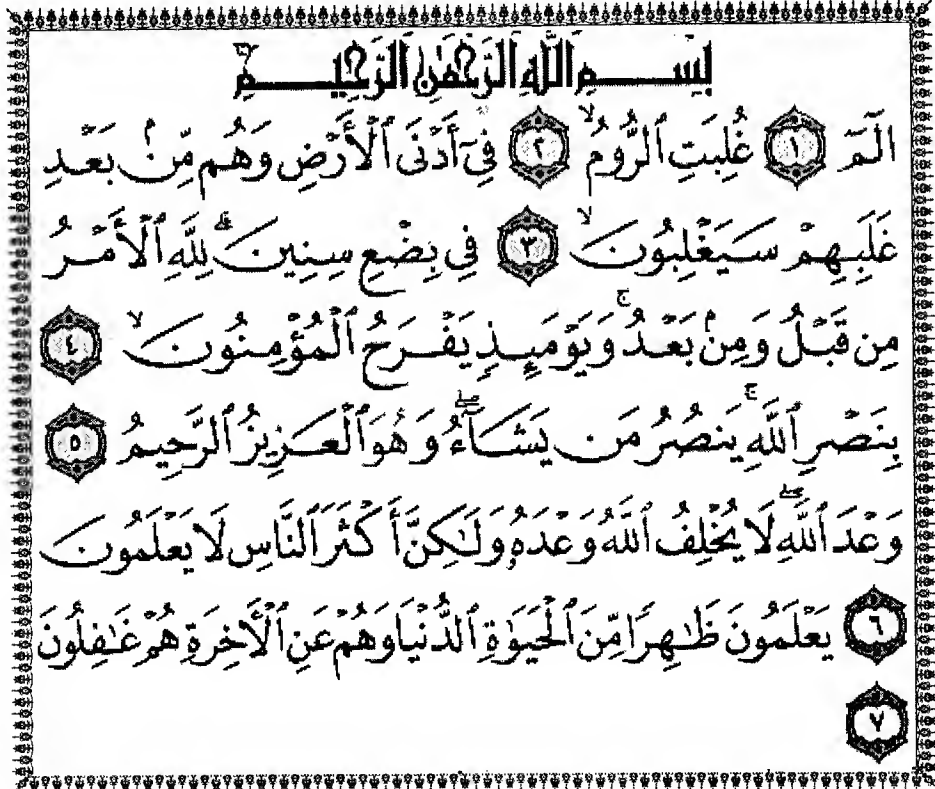 بِسْمِ ٱللَّهِ ٱلرَّحْمَٰنِ ٱلرَّحِيمِ
الٓمٓ ١ غُلِبَتِ ٱلرُّومُ ۙ ٢ فِىٓ أَدْنَى ٱلْأَرْضِ وَهُم مِّنۢ بَعْدِ
غَلَبِهِمْ سَيَغْلِبُونَ ۙ ٣ فِى بِضْعِ سِنِينَ ۗ لِلَّهِ ٱلْأَمْرُ
مِن قَبْلُ وَمِنۢ بَعْدُ ۚ وَيَوْمَئِذٍ يَفْرَحُ ٱلْمُؤْمِنُونَ ۙ ٤
بِنَصْرِ ٱللَّهِ ۚ يَنصُرُ مَن يَشَآءُ ۖ وَهُوَ ٱلْعَزِيزُ ٱلرَّحِيمُ ٥
وَعْدَ ٱللَّهِ ۖ لَا يُخْلِفُ ٱللَّهُ وَعْدَهُۥ وَلَٰكِنَّ أَكْثَرَ ٱلنَّاسِ لَا يَعْلَمُونَ
٦ يَعْلَمُونَ ظَٰهِرًا مِّنَ ٱلْحَيَوٰةِ ٱلدُّنْيَا وَهُمْ عَنِ ٱلْأَخِرَةِ هُمْ غَٰفِلُونَ
٧